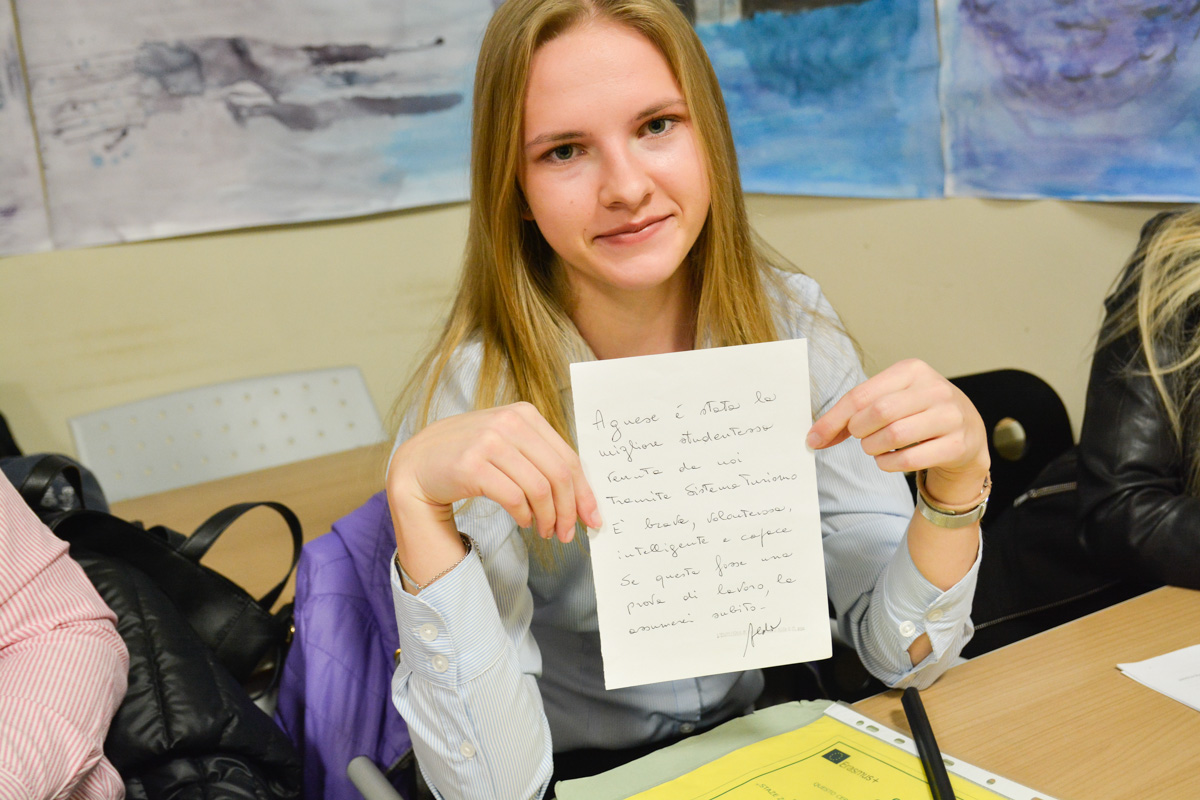 Agnese é stata la
migliore studentessa
venuta da noi
tramite Sistema Turismo
E' brava, volenterosa,
intelligente e capace
Se questa fosse una
prova di lavoro, la
assumerei subito-
Erasmus+